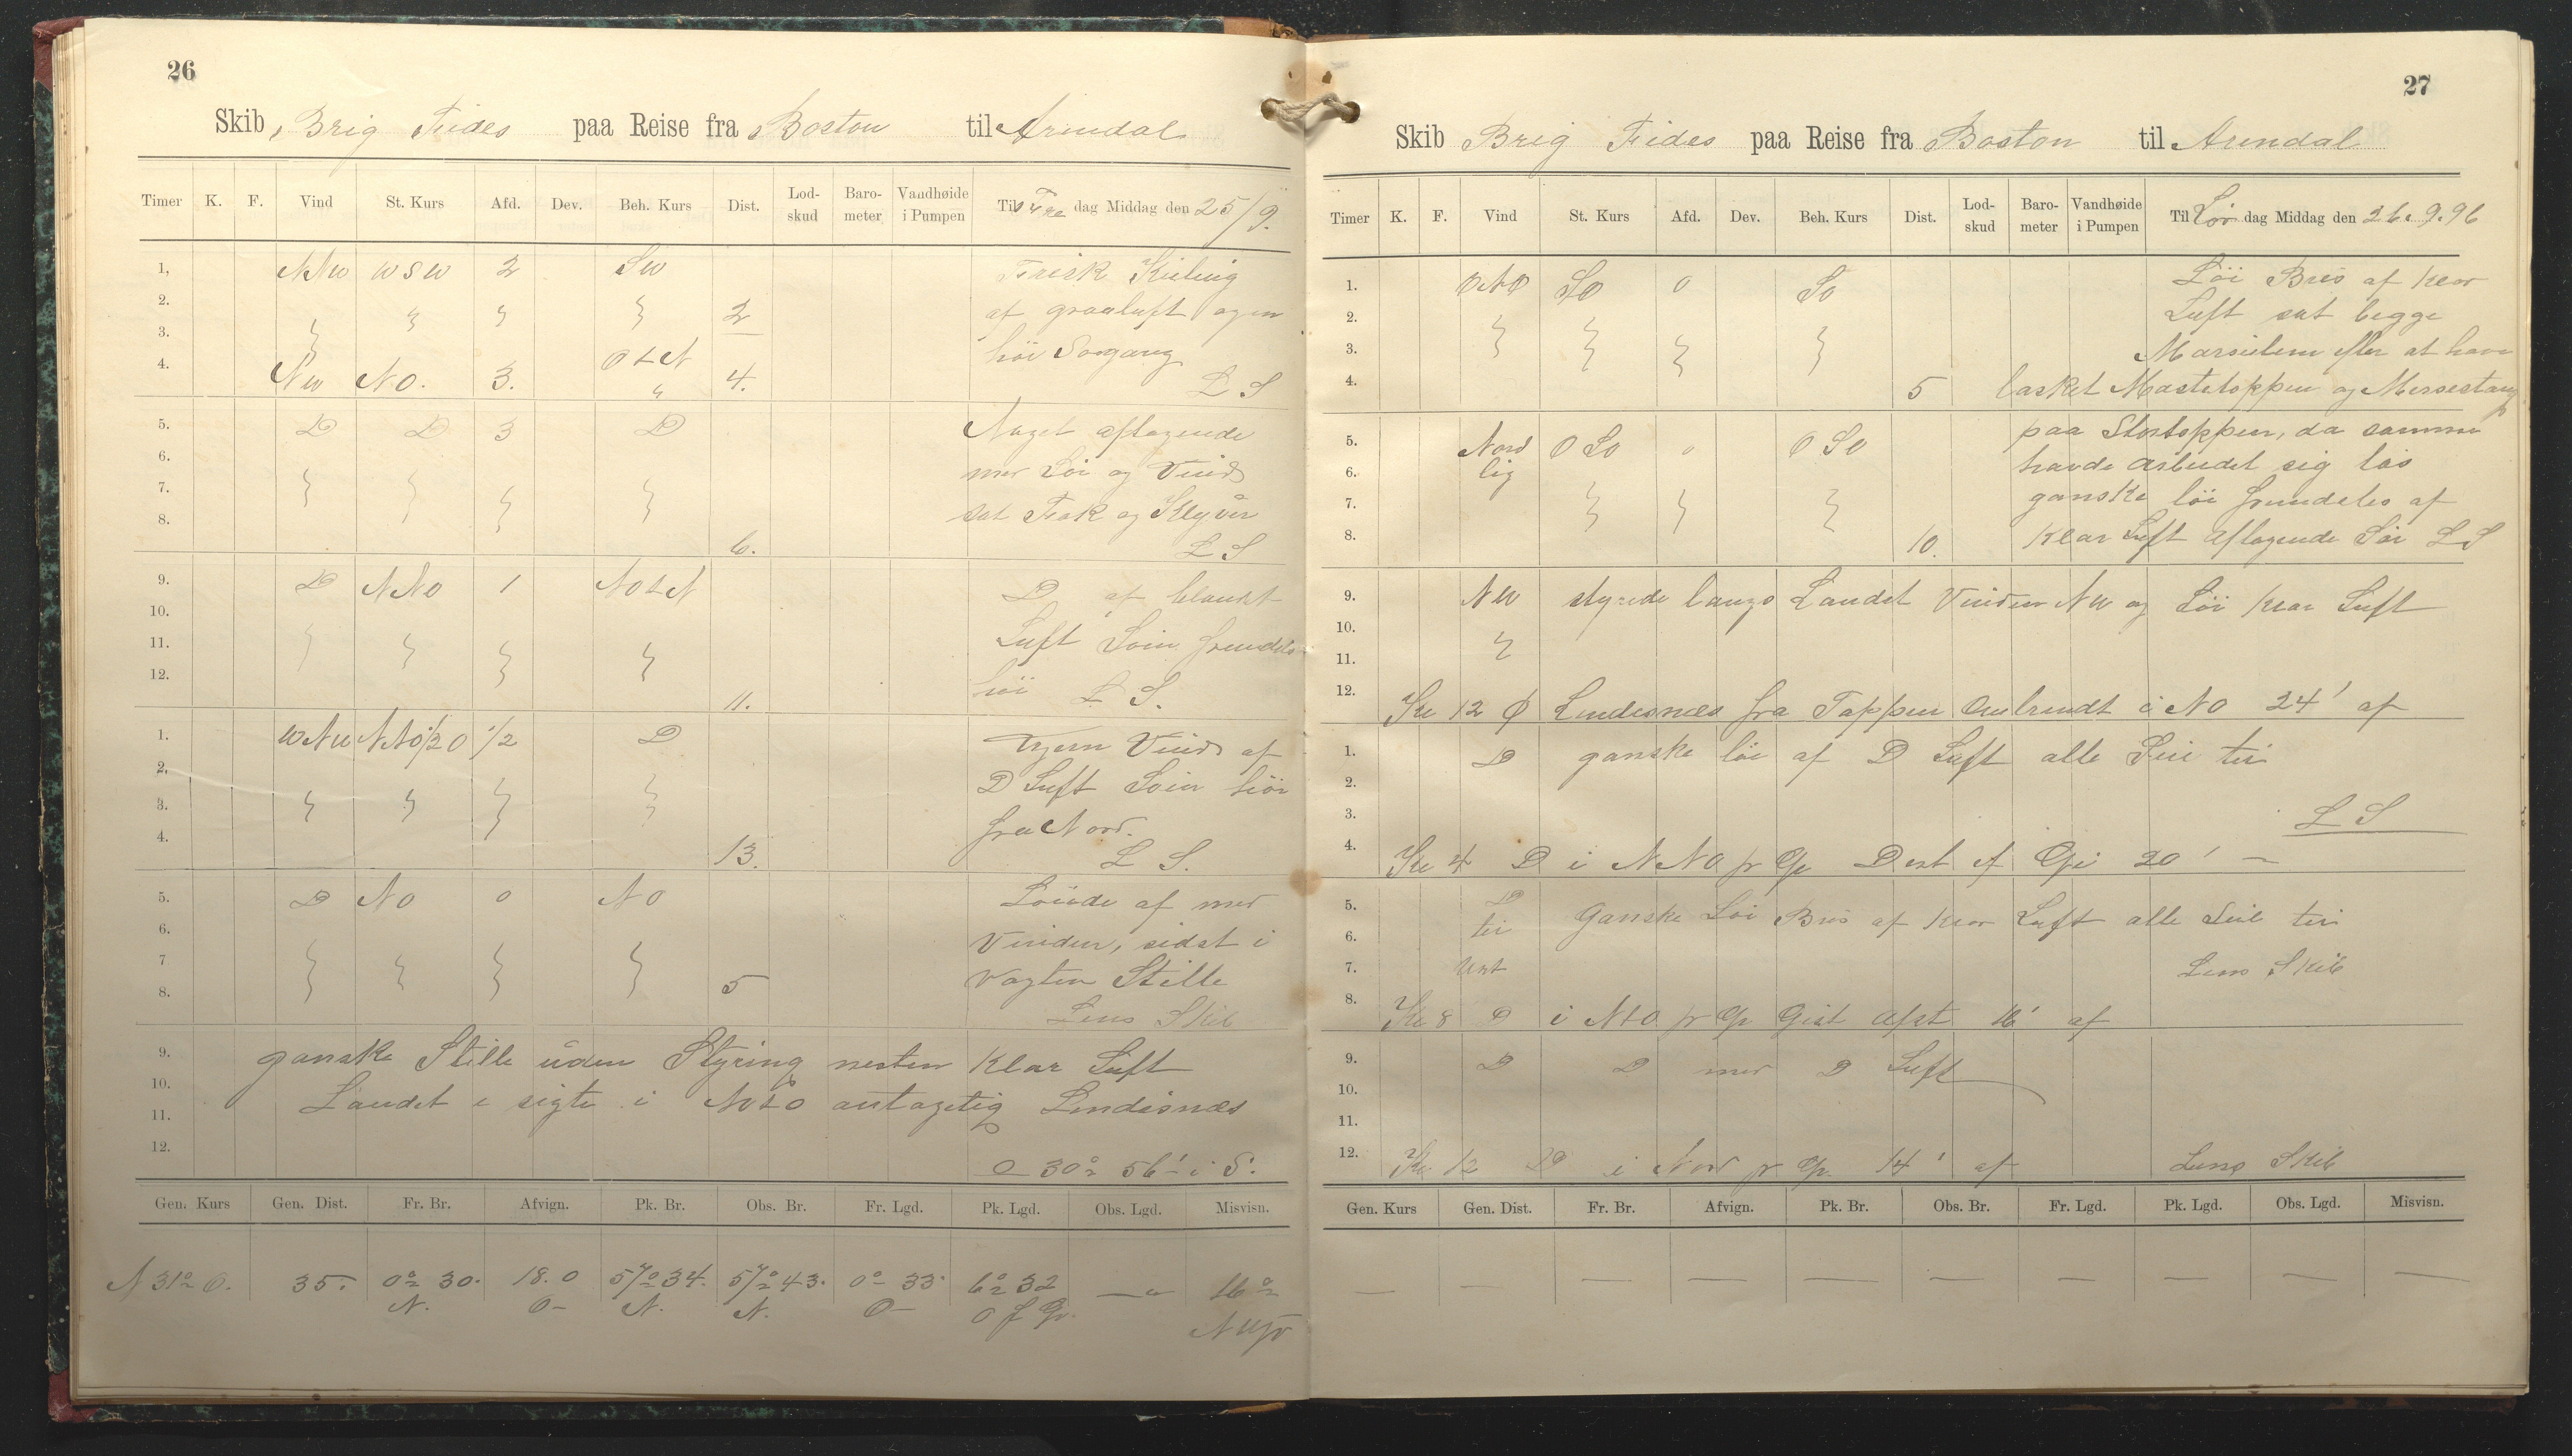 26
Skib, Brig Fides paa Reise fra Boston til Arendal
Timer K. F. Vind St. Kurs Afd. Dev. Beh. Kurs Dist. Lod-skud Baro-meter Vandhøide i Pumpen Til Fre dag Middag den 25/9.
1, NNW WSW 2 SW Frisk Kuling
2. 2 af graaluft ogen
3. høi Søgang
4. NW NO. 3. OtN 4. L S
5. D D 3 D Noget aftagende
6. mer Søi og Vind
7. sat Fok og Klyver
8. 6. L S
9. D NNO 1 NOtN D af blankt
10.
11. Luft Søin fremdeles
12. 11. høi L S.
1. WNW NNO 1/2 O 1/2 D Vind af
2. D Luft Søin høi
3. fra Nord.
4. 13. L S.
5. D NO 0 NO Løiede af med
6. Vinden, sidst i
7 vagten Stille
8. 5 Lens Skib
9. ganske Stille uden Styring nesten Klar Luft
10. Landet i sigte i NOtO antagelig Lindesnæs
11.
12. 30° 56' i S.
Gen. Kurs Gen. Dist. Fr. Br. Afvign. Pk. Br. Obs. Br. Fr. Lgd. Pk. Lgd. Obs. Lgd. Misvisn.
N 31° O. 35. 0° 30. N. 18.0 O 57° 34. N. 57° 43. N. 0° 33 O 6° 32 O f Gr. — 16°
27
Skib Brig Fides paa Reise fra Boston til Arendal
Timer K. F. Vind St. Kurs Afd. Dev. Beh. Kurs Dist. Lod-skud Baro-meter Vandhøide i Pumpen Til Lør dag Middag den 26.9.96
1. ONO SO 0 SO Løi Bris af klar
2. Luft sat begge
3. Mersseilene efter at have
4. 5 lasket Mastetoppen og Mersestang
5. Nord OSO 0 OSO paa Stortoppen, da samme
6. lig havde arbeidet sig løs
7. ganske løi fremdeles af
8. 10. Klar Luft aftagende Søi L S
9. NW styrede langs Landet Vinden NW og Løi klar Luft
10.
11.
12. Kl 12 Lindesnæs fra Toppen Ombrendt i NO 24' af
1. D ganske løi af D Luft alle Seil til
2.
3. L S
4. Kl 4 D i NNO pr Gp Dist af 20' —
5. D Ganske Løi Bris af klar Luft alle Seil til
6. til
7. West Lens Skib
8. Kl 8 D i NtO pr Gp Gist Afst 16' af
9. D D med D Luft
10.
11.
12. Kl 12 D i Nord pr Gp 14' af Lens Skib
Gen. Kurs Gen. Dist. Fr. Br. Afvign. Pk. Br. Obs. Br. Fr. Lgd. Pk. Lgd. Obs. Lgd. Misvisn.
— — — — — — — — — —